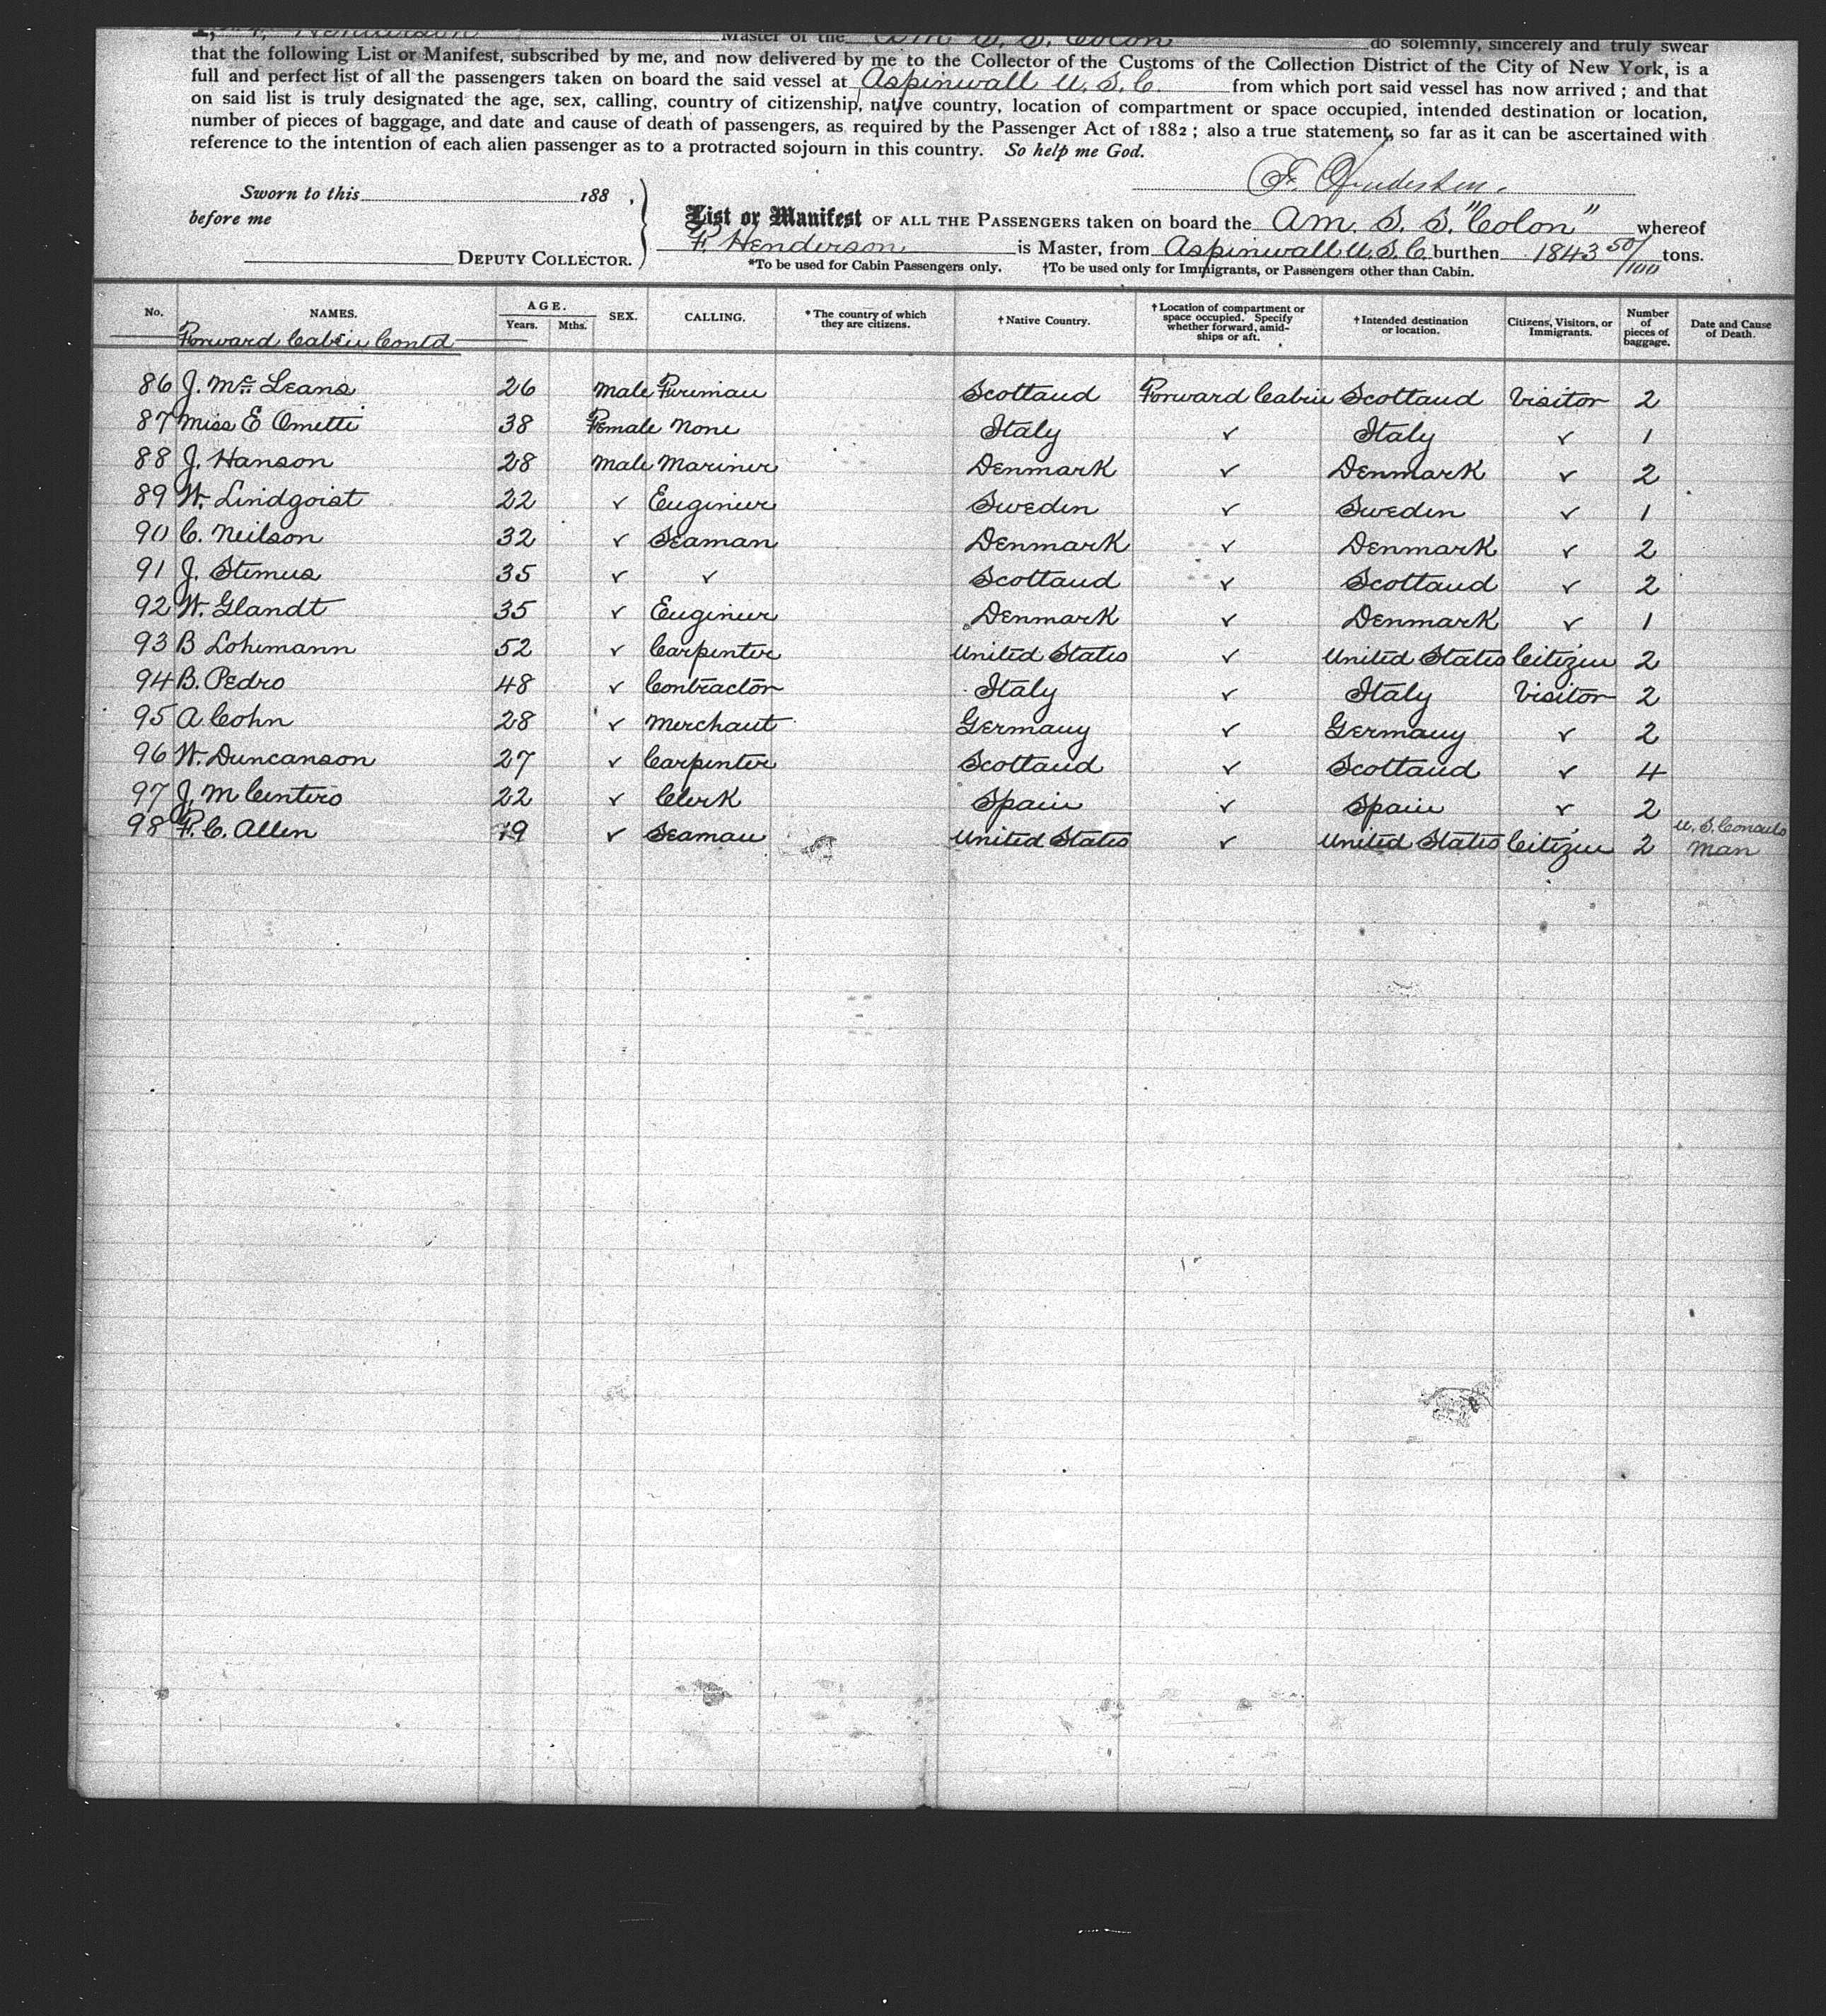 I, F. Henderson Master of the Am. S. S. Colon do solemnly, sincerely and truly swear
that the following List or Manifest, subscribed by me, and now delivered by me to the Collector of the Customs of the Collection District of the City of New York, is a
full and perfect list of all the passengers taken on board the said vessel at Aspinwall U. S. C. from which port said vessel has now arrived; and that
on said list is truly designated the age, sex, calling, country of citizenship, native country, location of compartment or space occupied, intended destination or location,
number of pieces of baggage, and date and cause of death of passengers, as required by the Passenger Act of 1882; also a true statement, so far as it can be ascertained with
reference to the intention of each alien passenger as to a protracted sojourn in this country. So help me God.
F. Henderson.
Sworn to this 188 ,
before me
DEPUTY COLLECTOR.
List or Manifest OF ALL THE PASSENGERS taken on board the Am. S. S. "Colon" whereof
F. Henderson is Master, from Aspinwall U. S. C burthen 1843 50/100 tons.
*To be used for Cabin Passengers only. †To be used only for Immigrants, or Passengers other than Cabin.
No. NAMES. AGE. Years. Mths. SEX. CALLING. *The country of which they are citizens. †Native Country. †Location of compartment or space occupied. Specify whether forward, amid-ships or aft. †Intended destination or location. Citizens, Visitors, or Immigrants. Number of pieces of baggage. Date and Cause of Death.
Forward Cabin Contd
86 J. McLeans 26 Male Fireman Scotland Forward Cabin Scotland Visitor 2
87 Miss E Ometti 38 Female None Italy ✓ Italy ✓ 1
88 J. Hanson 28 Male Mariner Denmark ✓ Denmark ✓ 2
89 W. Lindgoist 22 ✓ Engineer Sweden ✓ Sweden ✓ 1
90 C. Neilson 32 ✓ Seaman Denmark ✓ Denmark ✓ 2
91 J. Stimus 35 ✓ ✓ Scotland ✓ Scotland ✓ 2
92 W. Glandt 35 ✓ Engineer Denmark ✓ Denmark ✓ 1
93 B Lohemann 52 ✓ Carpenter United States ✓ United States Citizen 2
94 B. Pedro 48 ✓ Contractor Italy ✓ Italy Visitor 2
95 A Cohn 28 ✓ Merchant Germany ✓ Germany ✓ 2
96 W. Duncanson 27 ✓ Carpenter Scotland ✓ Scotland ✓ 4
97 J. M Centero 22 ✓ Clerk Spain ✓ Spain ✓ 2
98 F. C. Allen 19 ✓ Seaman United States ✓ United States Citizen 2 U. S. Consuls
Man